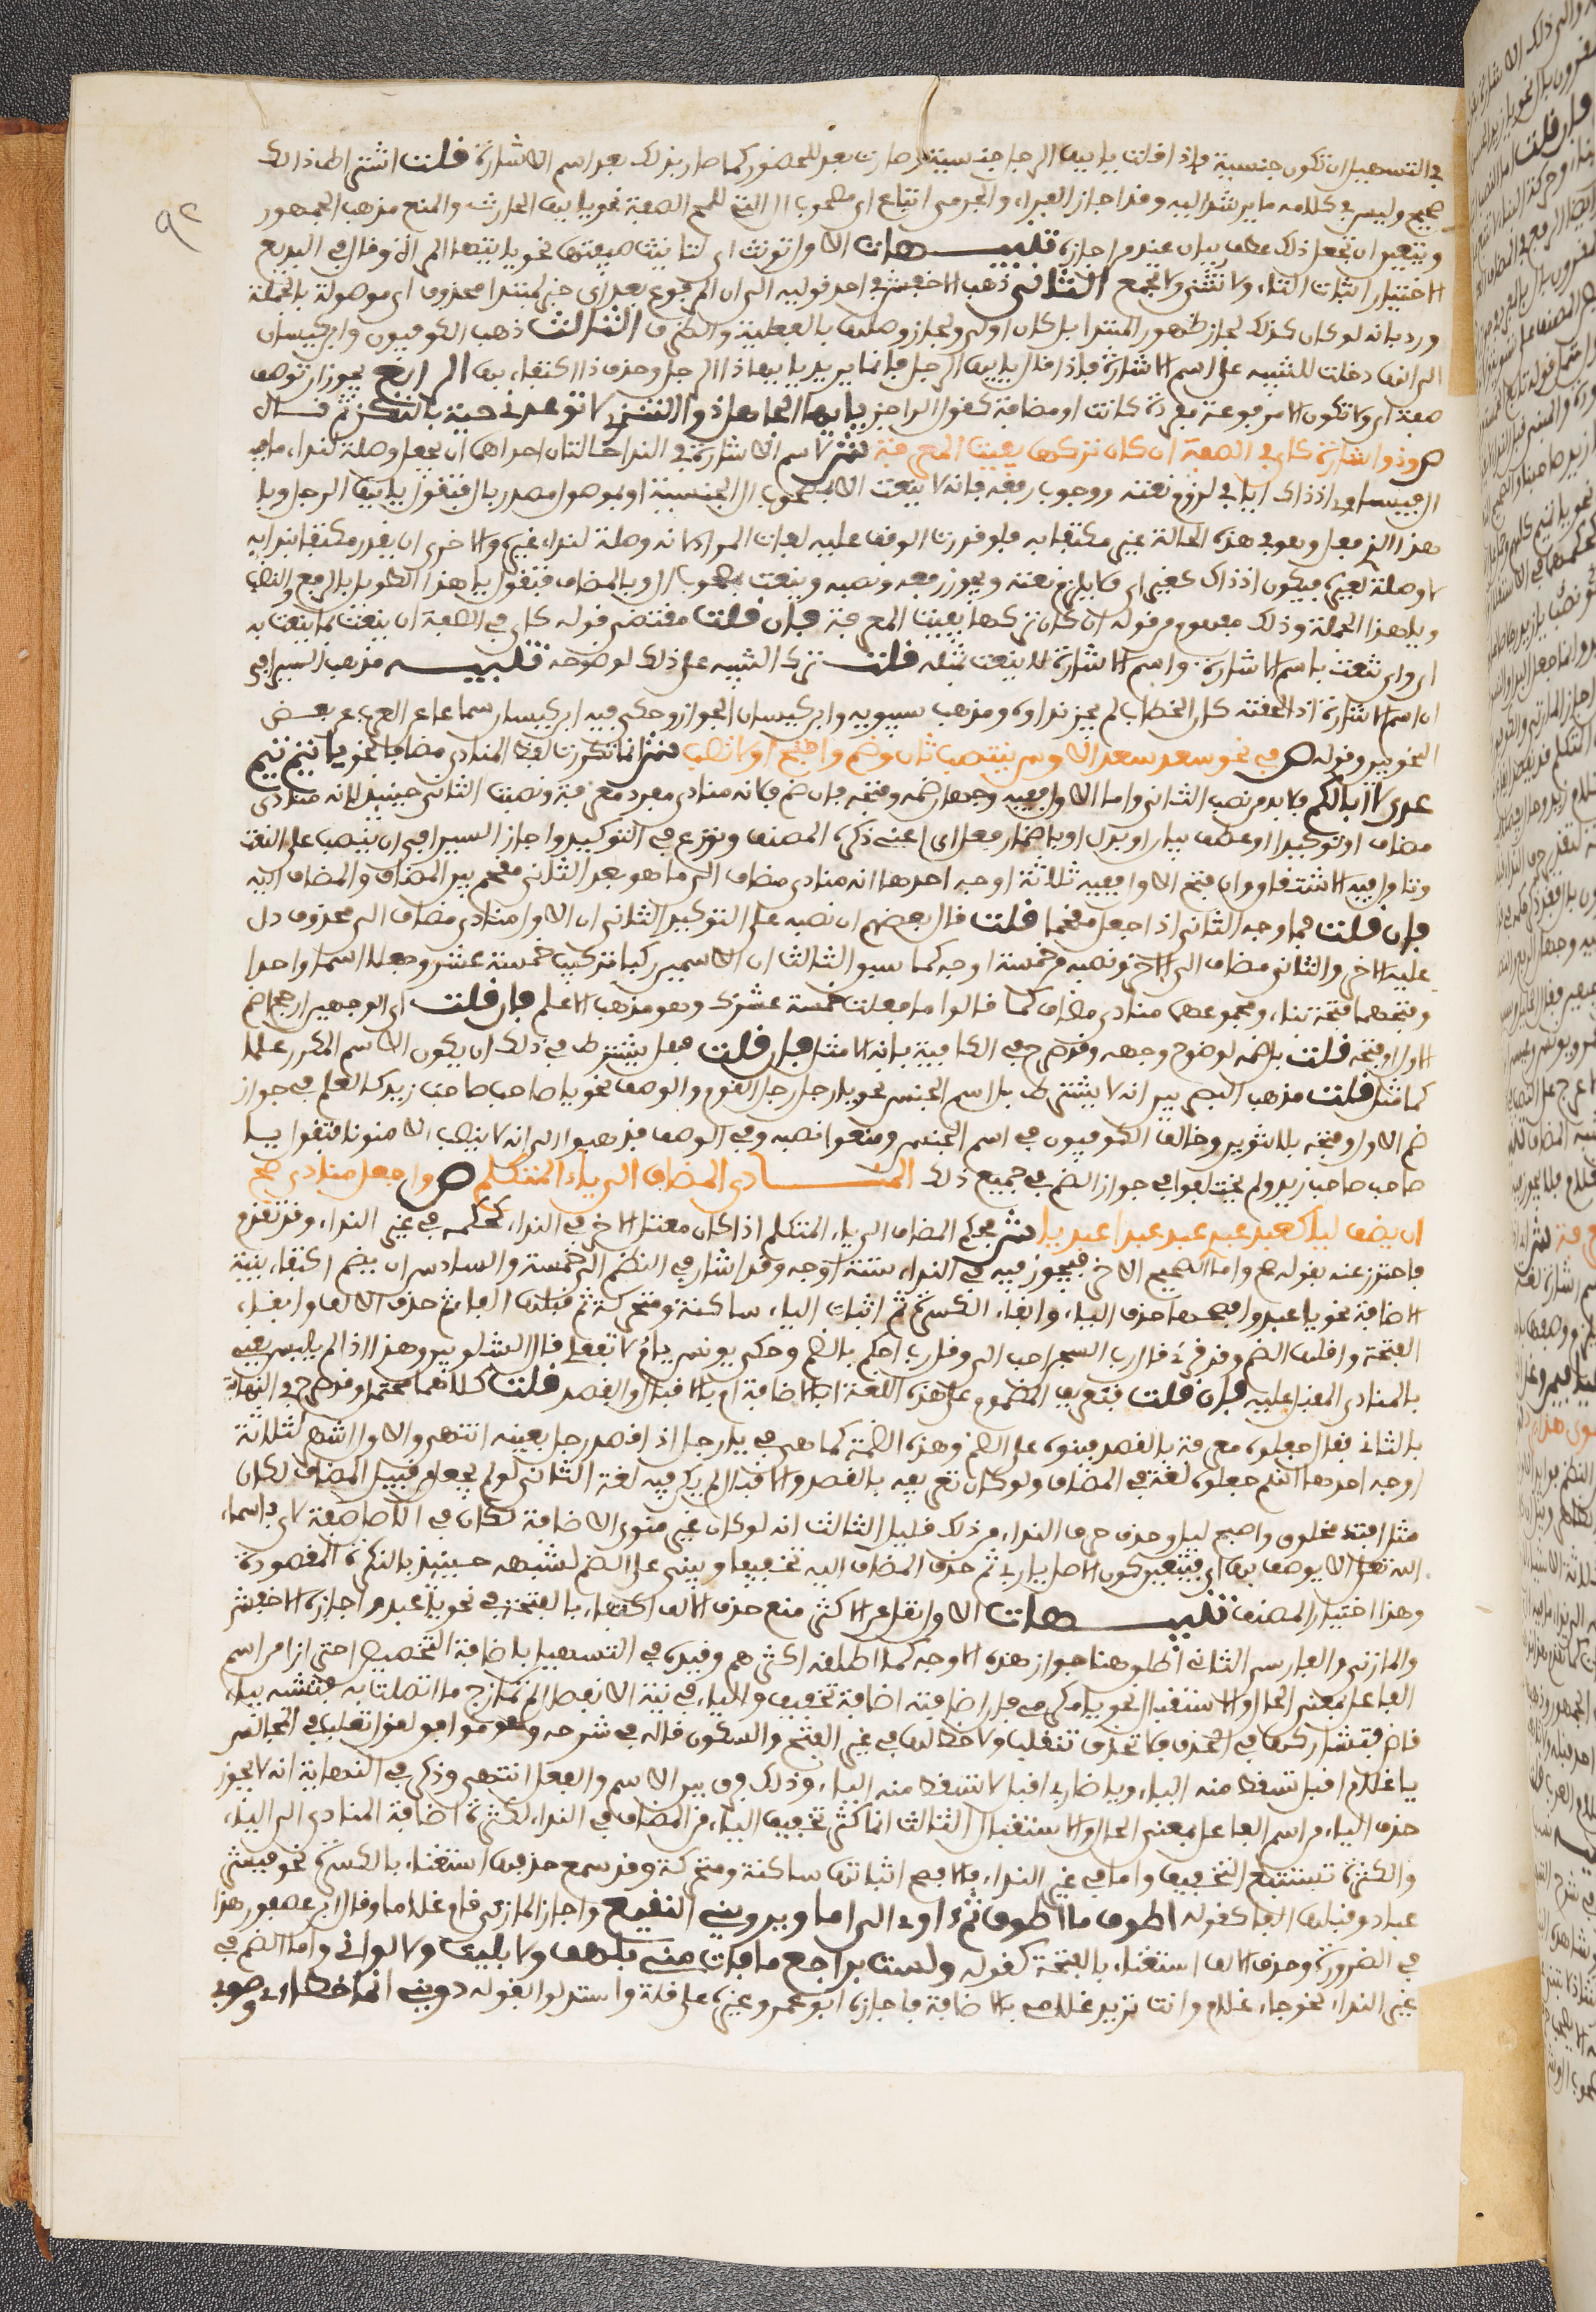 في التسهيل ان تكون جنسية فإذا قلت يا ايها الرجل فال جنسية وصارت بعد للحضور كما صار بذلك بعد اسم الاشارة قلت اشتراط ذلك
صحيح وليس في كلامه ما يرشد اليه وقد اجاز الفراء والجرمي اتباع اي مصحوب ال التي للمح الصفة نحو يا ايها الحارث والمنع مذهب الجمهور
ويتعين ان يجعل ذلك عطف بيان عند من اجازه تنبيهات الاول تؤنث اي لتانيث صفتها نحو يا ايتها المراة وقال في البديع
الاختيار اثبات التاء ولا تثنى ولا تجمع الثاني ذهب الاخفش في احد قوليه الى ان المرفوع بعد اي خبر لمبتدا محذوف اي موصولة بالجملة
ورد بانه لو كان كذلك لجاز ظهور المبتدا بل كان اولى ولجاز وصلها بالفعلية والظرف الثالث ذهب الكوفيون وابن كيسان
الى ان ها دخلت للتنبيه على اسم الاشارة فاذا قال يا ايها الرجل فانما يريد يا ايها ذا الرجل وحذف ذا اكتفاء بها الرابع يجوز ان توصف
صفة اي ولا تكون الا مرفوعة مفردة كانت او مضافة كقول الراجز يا ايها الجاهل ذو التنزي لا توعدني حية بالنكز ثم قال
ص وذو اشارة كاي في الصفة ان كان تركها يفيت المعرفة ش لاسم الاشارة في النداء حالتان احداهما ان يجعل وصلة لنداء ما فيه
ال فيساوي اذ ذاك ايا في لزوم نعته ووجوب رفعه فانه لا ينعت الا بمصحوب ال الجنسية او بموصول مصدر بال فتقول يا ايها الرجل ويا
هذا الذي فعل وهو في هذه الحالة غير مكتفى به فلو قدرت الوقف عليه لفات المراد لانه وصلة لنداء غيره والاخرى ان يقدر مكتفى بندائه
لا وصلة لغيره فيكون اذ ذاك كغيره اي فلا يلزم نعته ويجوز رفعه ونصبه وينعت بمصحوب ال وبالمضاف فتقول يا هذا الطويل بالرفع والنصب
ويا هذا الجملة وذلك مفهوم من قوله ان كان تركها يفيت المعرفة فان قلت مقتضى قوله كاي في الصفة ان ينعت بما ينعت به
اي واي تنعت باسم الاشارة واسم الاشارة لا ينعت بمثله قلت ترك التنبيه على ذلك لوضوحه تنبيه مذهب السيرافي
ان اسم الاشارة اذا لحقته كاف الخطاب لم يجز نداؤه ومذهب سيبويه وابن كيسان الجواز وحكى فيه ابن كيسان سماعا عن العرب عن بعض
النحويين وقوله ص في نحو سعد سعد الاوس ينتصب ثان وضم وافتح اولا تصب ش اذا تكررت لفظ المنادى مضافا نحو يا تيم تيم
عدي لا ابا لكم فلا بد من نصب الثاني واما الاول ففيه وجهان ضمه وفتحه فان ضم فلانه منادى مفرد معرفة ونصب الثاني حينئذ لانه منادى
مضاف او توكيد او عطف بيان او بدل او باضمار فعل اي اعني ذكره المصنف ونوزع في التوكيد واجاز السيرافي ان ينصب على النعت
وتاول فيه الاشتقاق وان فتح الاول ففيه ثلاثة اوجه احدها انه منادى مضاف الى ما هو بعد الثاني مقحم بين المضاف والمضاف اليه
فان قلت فما وجه الثاني اذا جعل مقحما قلت قال بعضهم ان نصبه على التوكيد الثاني ان الاول منادى مضاف الى محذوف دل
عليه الاخر والثاني مضاف الى الاخر ونصبه من خمسة اوجه كما سبق الثالث ان الاسمين ركبا تركيب خمسة عشر وجعلا اسما واحدا
وفتحهما فتحة بناء ومجموعهما منادى مضاف كما قالوا ما فعلت خمسة عشرك وهو مذهب الاعلم فان قلت اي الوجهين ارجح اضم
الاول او فتحه قلت بل ضمه لوضوح وجهه وقد صرح في الكافية بانه الامثل فان قلت فهل يشترط في ذلك ان يكون الاسم المكرر علما
كما مثل قلت مذهب البصريين انه لا يشترط بل اسم الجنس نحو يا رجل رجل القوم والوصف نحو يا صاحب صاحب زيد كالعلم في جواز
ضم الاول وفتحه بلا تنوين وخالف الكوفيون في اسم الجنس ومنعوا نصبه وفي الوصف فذهبوا الى انه لا ينصب الا منونا فتقول يا
صاحبا صاحب زيد ولم يختلفوا في جواز الضم في جميع ذلك المنادى المضاف الى ياء المتكلم ص واجعل منادى صح
ان يضف ليا كعبد عبدي عبد عبدا عبديا ش حكم المضاف الى ياء المتكلم اذا كان معتل الاخر في النداء كحكمه في غير النداء وقد تقدم
فاحترز عنه بقوله صح واما الصحيح الاخر فيجوز فيه في النداء ستة اوجه وقد اشار في النظم الى خمسة والسادس ان يضم اكتفاء بنية
الاضافة نحو يا عبد وافصحها حذف الياء وابقاء الكسرة ثم اثبات الياء ساكنة ومتحركة ثم قلبها الفا ثم حذف الالف وابقاء
الفتحة واقلها الضم وقد قرئ قال رب السجن احب الي وقل رب احكم بالضم وحكى يونس يا ام لا تفعلي قال الشلوبين وهذا اذا لم يلبس يعني
بالمنادى المقبل عليه فان قلت فتعريف المضموم على هذه اللغة ابالاضافة ام بالاقبال والقصد قلت كلاهما محتمل وقد صرح في النهاية
بالثاني فقال جعلوه معرفة بالقصد فبنوه على الضم وهذه الضمة كما هي في يا رجل اذا قصد رجل بعينه انتهى والاول اشهر لثلاثة
اوجه احدها انهم جعلوه لغة في المضاف ولو كان تعريفه بالقصد والاقبال لم يكن فيه لغة الثاني لو لم يجعل من قبيل المضاف لكان
مثل افتد مخلوق واصبح ليل وحذف حرف النداء من ذلك قليل الثالث انه لو كان غير منوي الاضافة لكان في الاصل صفة لاي واسماء
الله تعالى لا يوصف بها اي فيتعين كون الاصل يا ربي ثم حذف المضاف اليه تخفيفا وبني على الضم لشبهه حينئذ بالنكرة المقصودة
وهذا اختيار المصنف تنبيهات الاول نقل عن الاكثر منع حذف الالف اكتفاء بالفتحة في نحو يا عبد واجازه الاخفش
والمازني والفارسي الثاني اطلق هنا جواز هذه الاوجه كما اطلقه اكثرهم وقيده في التسهيل باضافة التخصيص احترازا من اسم
الفاعل بمعنى الحال والاستقبال نحو يا مكرمي فان اضافته اضافة تخفيف والياء في نية الانفصال لم تمازج ما اتصلت به فتشبه بياء
قاض فتشاركها في الحذف فلا تحذف ولا تقلب ولا حظ لها في غير الفتح والسكون قاله في شرحه وهو موافق لقول ثعلب في المجالس
يا غلام اقبل تسقط منه الياء ويا ضاربي اقبل لا تسقط منه الياء وذلك فرق بين الاسم والفعل انتهى وذكر في النهاية انه لا يجوز
حذف الياء من اسم الفاعل بمعنى الحال والاستقبال الثالث انما كثر تخفيف الياء من المضاف في النداء لكثرة اضافة المنادى الى الياء
والكثرة تستتبع التخفيف واما في غير النداء فالافصح اثباتها ساكنة ومتحركة وقد سمع حذفها استغناء بالكسرة نحو فبشر
عباد وقلبها الفا كقوله اطوف ما اطوف ثم آوي الى اما ويرويني النقيع واجاز المازني قام غلاما وقال ابن عصفور هذا
في الضرورة وحذف الالف استغناء بالفتحة كقوله ولست براجع ما فات مني بلهف ولا بليت ولا لواني واما الضم في
غير النداء نحو جاء غلام وانت تريد غلامي بالاضافة فاجازه ابو عمرو وغيره على قلة واستدلوا بقوله ذريني انما خطئي وصوبي
٩٢